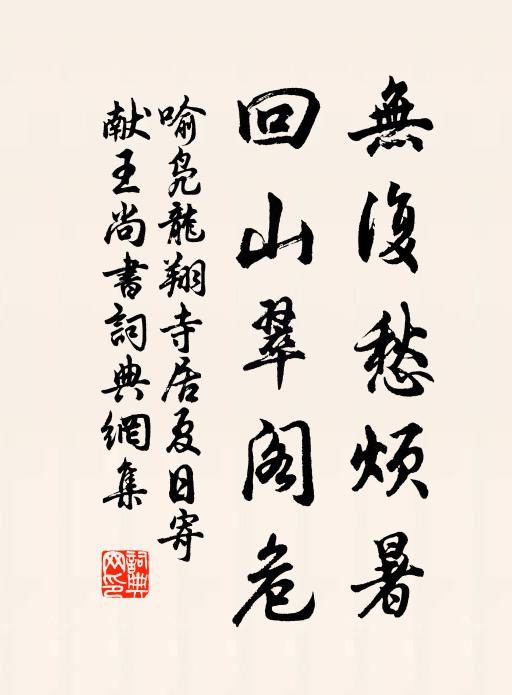 無復愁煩暑
回山翠閣危
喻凫龍翔寺居夏日寄
献王尚書詞典網集
詞典網印